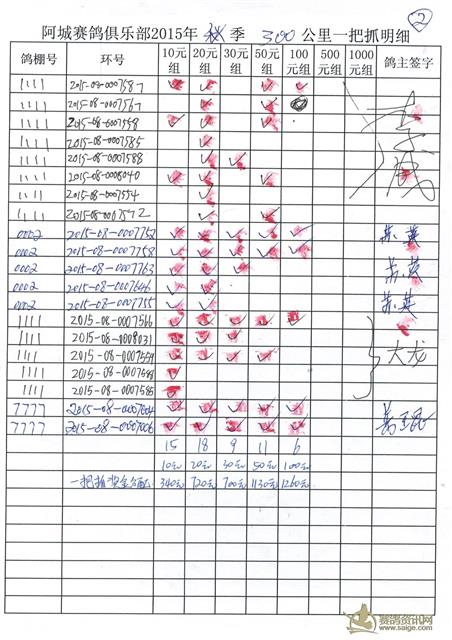 ②
阿城赛鸽俱乐部2015年 秋 季 300 公里一把抓明细
鸽棚号 环号 10元组 20元组 30元组 50元组 100元组 500元组 1000元组 鸽主签字
1111 2015-08-0007587 ✓ ✓ ✓ ✓
1111 2015-08-0007567 ✓ ✓
1111 2015-08-0007558 ✓ ✓ ✓
1111 2015-08-0007585 ✓
1111 2015-08-0007588 ✓ ✓
1111 2015-08-0008040 ✓ ✓ ✓
1111 2015-08-0007554 ✓
1111 2015-08-0007572 ✓ ✓
0002 2015-08-0007752 ✓ ✓ ✓ ✓ ✓ 苏英
0002 2015-08-0007758 ✓ ✓ ✓ ✓ ✓
0002 2015-08-0007763 ✓ ✓ ✓ 苏英
0002 2015-08-0007646 ✓ ✓
0002 2015-08-0007755 ✓ ✓ 苏英
1111 2015-08-0007566 ✓ ✓ ✓ ✓ ✓
1111 2015-08-0008031 ✓ ✓ ✓
1111 2015-08-0007559 ✓ ✓ ✓ ✓ 大龙
1111 2015-08-0007588 ✓
1111 2015-08-0007585 ✓
7777 2015-08-0007604 ✓ ✓ ✓ ✓ ✓
7777 2015-08-0007006 ✓ ✓ ✓ ✓ ✓
15 18 9 11 6
10元 20元 30元 50元 100元
一把抓奖金分配 340元 720元 700元 1130元 1260元
赛鸽资讯网
www.saige.com